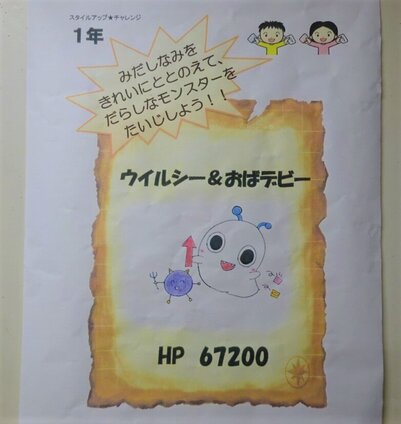 スタイルアップ★チャレンジ
1年
みだしなみを
きれいにととのえて、
だらしなモンスターを
たいじしよう!!
ウイルシー&おばデビー
HP 67200